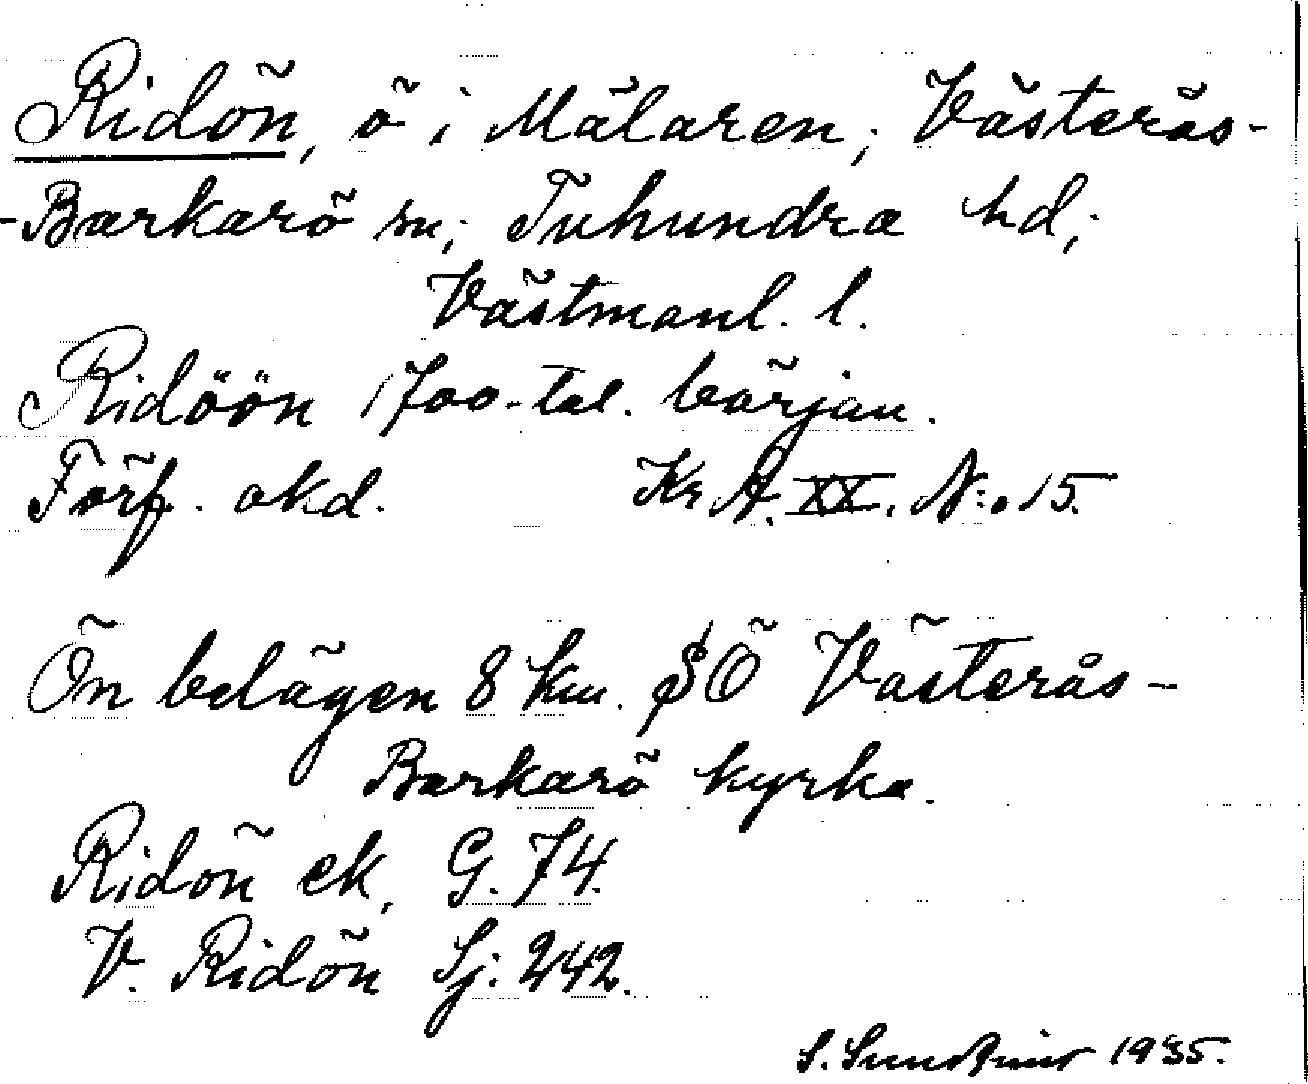 Ridön, ö i Mälaren; Västerås-
-Barkarö sn; Tuhundra hd;
Västmanl. l.
Ridöön 1700-tal. början.
Förf. okd. Kr A. XX. N:o 15.
Ön belägen 8 km. SÖ Västerås-
Barkarö kyrka.
Ridön ek. G. 74.
V. Ridön Sj. 242.
S. 1935.